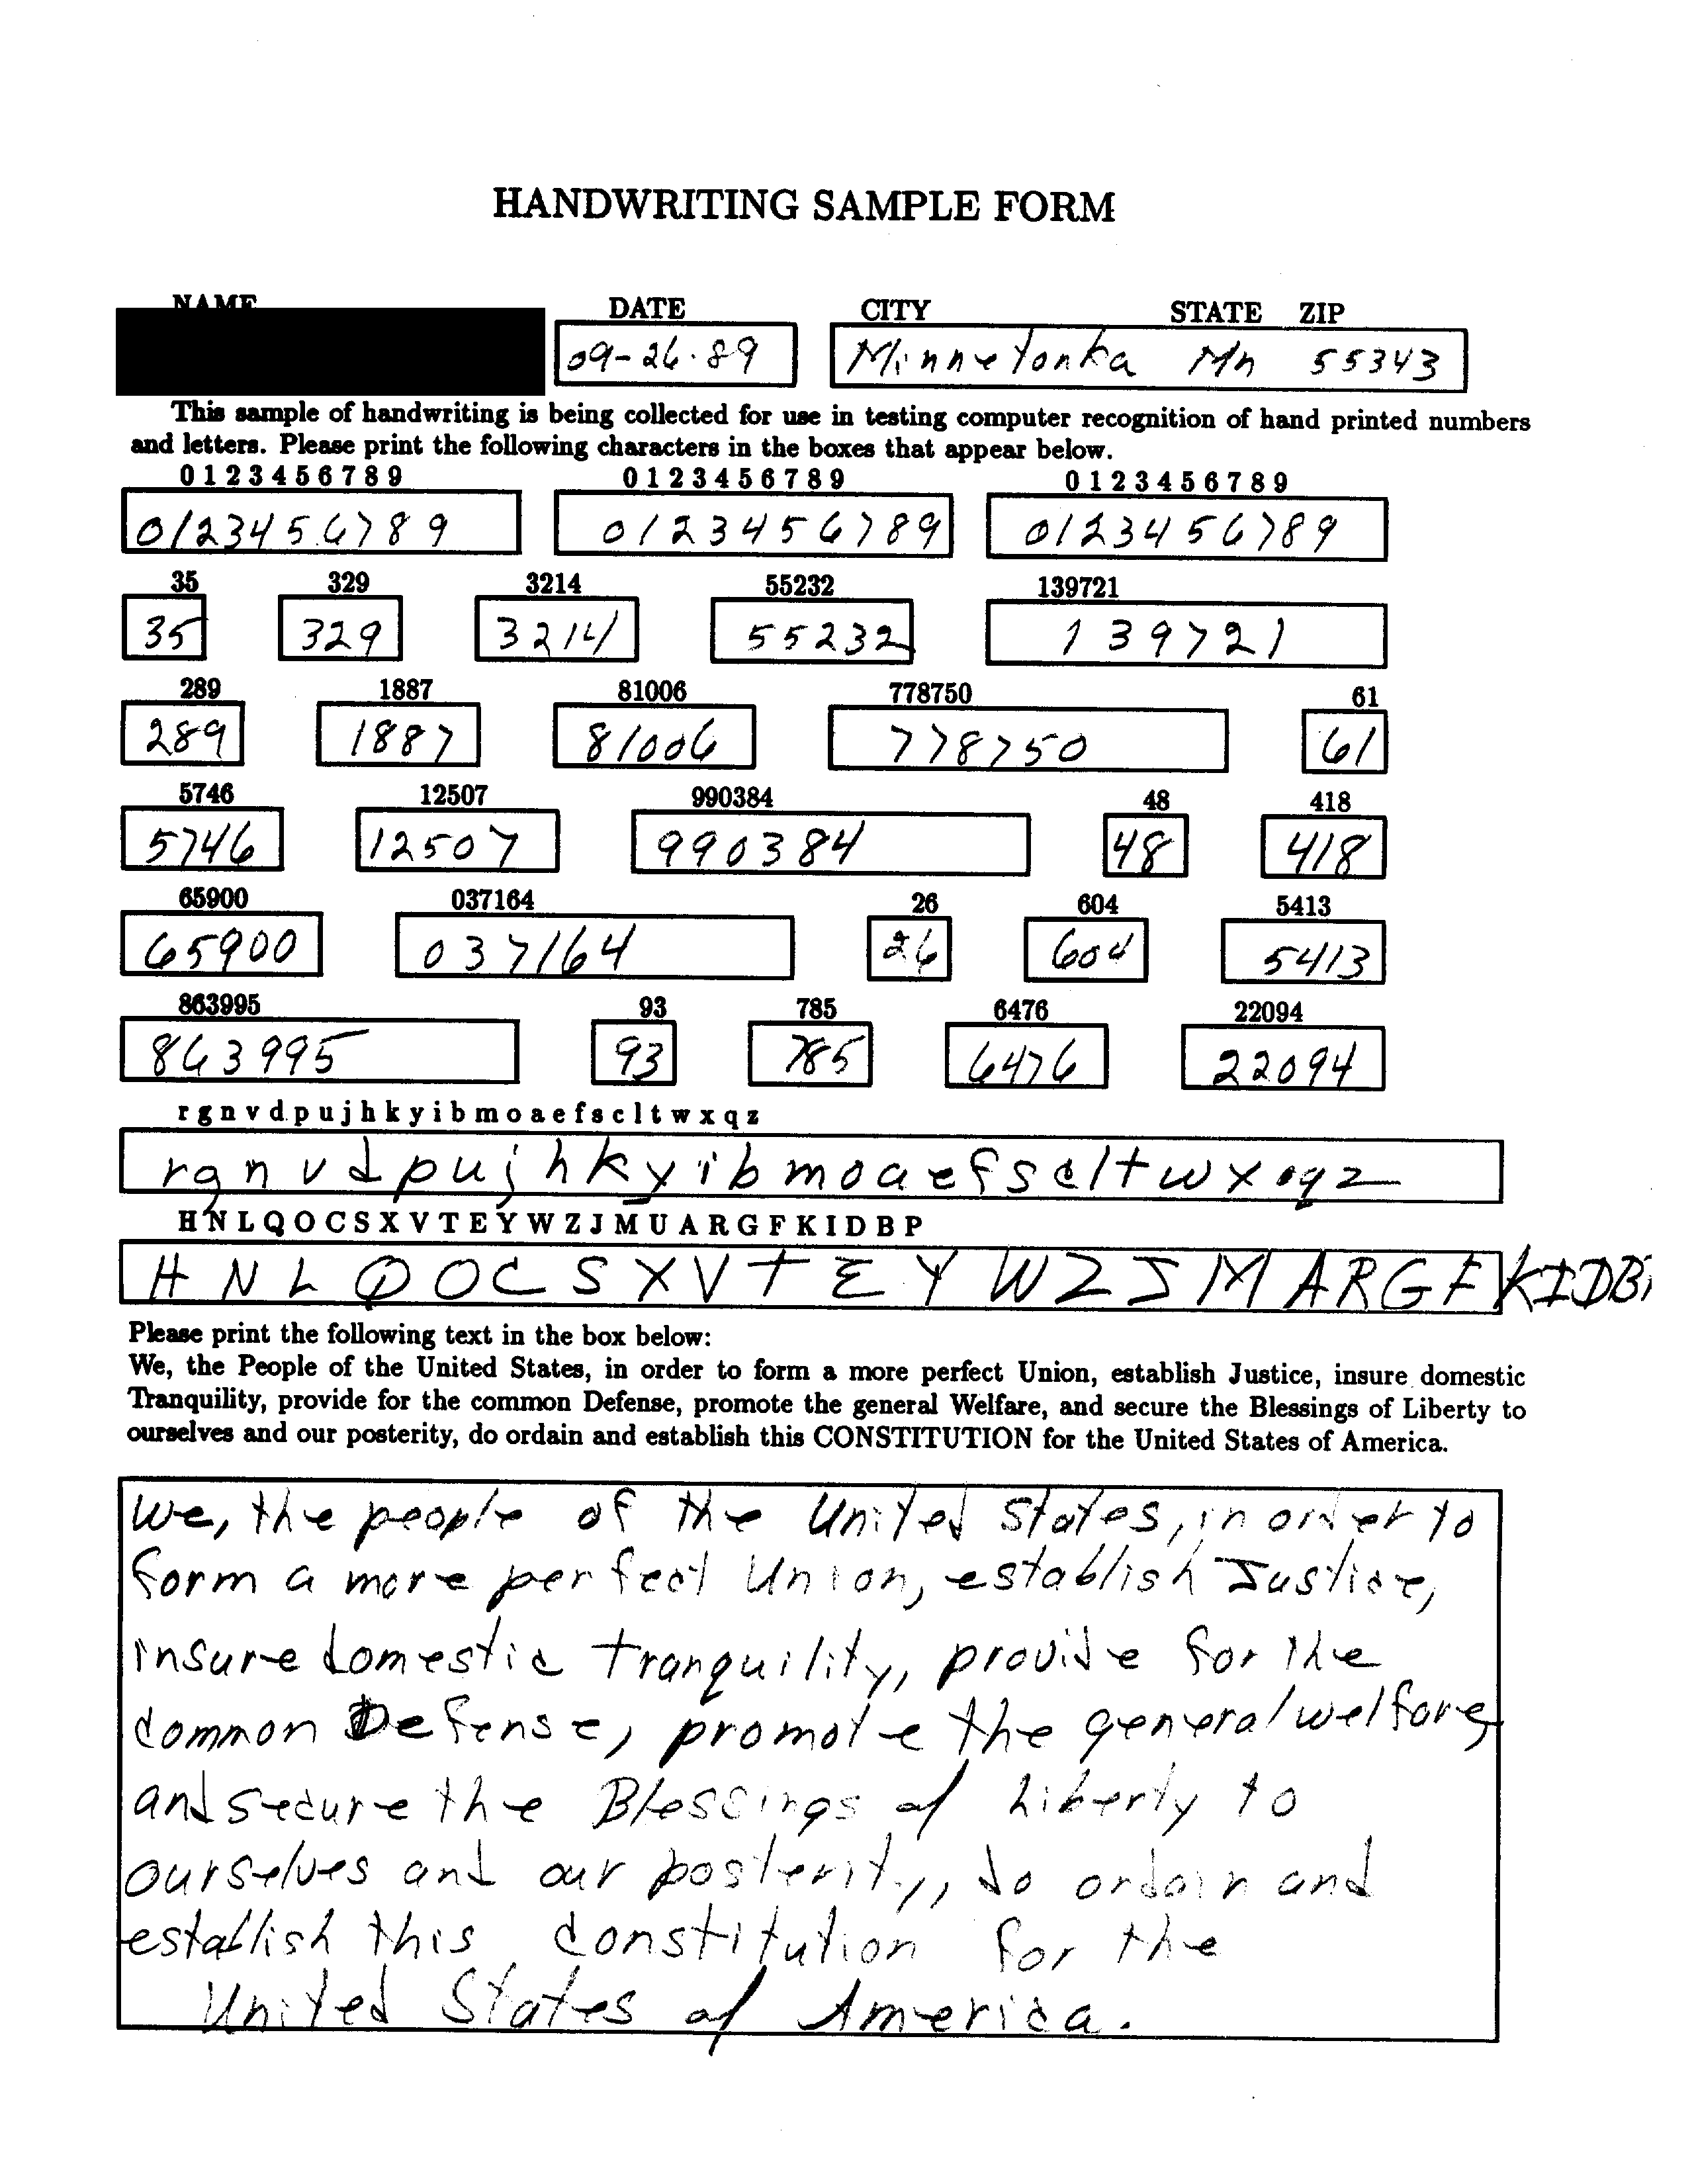 HANDWRITING SAMPLE FORM
NAME DATE CITY STATE ZIP
09-26-89 Minnetonka Mn 55343
This sample of handwriting is being collected for use in testing computer recognition of hand printed numbers
and letters. Please print the following characters in the boxes that appear below.
0 1 2 3 4 5 6 7 8 9 0 1 2 3 4 5 6 7 8 9 0 1 2 3 4 5 6 7 8 9
0123456789 0123456789 0123456789
35 329 3214 55232 139721
35 329 3214 55232 139721
289 1887 81006 778750 61
289 1887 81006 778750 61
5746 12507 990384 48 418
5746 12507 990384 48 418
65900 037164 26 604 5413
65900 037164 26 604 5413
863995 93 785 6476 22094
863995 93 785 6476 22094
r g n v d p u j h k y i b m o a e f s c l t w x q z
r g n v d p u j h k y i b m o a e f s c l t w x q z
H N L Q O C S X V T E Y W Z J M U A R G F K I D B P
H N L Q O C S X V T E Y W Z J M A R G F K I D B
Please print the following text in the box below:
We, the People of the United States, in order to form a more perfect Union, establish Justice, insure domestic
Tranquility, provide for the common Defense, promote the general Welfare, and secure the Blessings of Liberty to
ourselves and our posterity, do ordain and establish this CONSTITUTION for the United States of America.
We, the people of the United States, in order to
form a more perfect Union, establish Justice,
insure domestic tranquility, provide for the
common Defense, promote the general welfare,
and secure the Blessings of Liberty to
ourselves and our posterity, do ordain and
establish this constitution for the
United States of America.